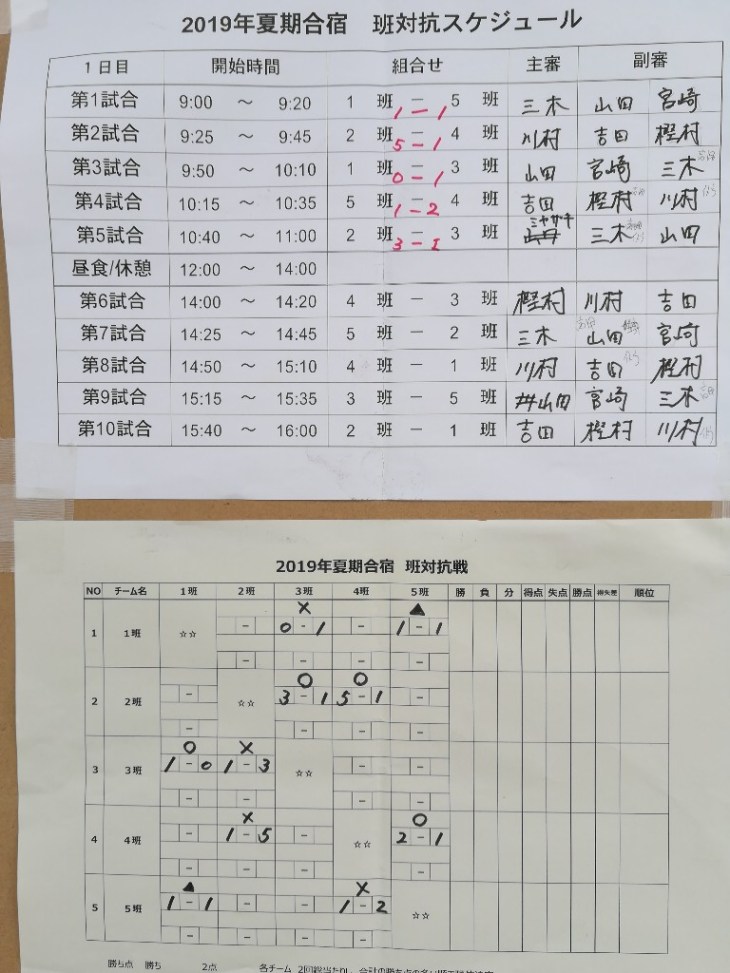 2019年夏期合宿 班対抗スケジュール
1日目 開始時間 組合せ 主審 副審
第1試合 9:00 ～ 9:20 1 班 1 － 1 5 班 三木 山田 宮崎
第2試合 9:25 ～ 9:45 2 班 5 － 1 4 班 川村 吉田 樫村
第3試合 9:50 ～ 10:10 1 班 0 － 1 3 班 山田 宮崎 三木
第4試合 10:15 ～ 10:35 5 班 1 － 2 4 班 吉田 樫村 川村
ミヤザキ
第5試合 10:40 ～ 11:00 2 班 3 － 1 3 班 三木 山田
昼食/休憩 12:00 ～ 14:00
第6試合 14:00 ～ 14:20 4 班 － 3 班 樫村 川村 吉田
第7試合 14:25 ～ 14:45 5 班 － 2 班 三木 山田 宮崎
第8試合 14:50 ～ 15:10 4 班 － 1 班 川村 吉田 樫村
第9試合 15:15 ～ 15:35 3 班 － 5 班 山田 宮崎 三木
第10試合 15:40 ～ 16:00 2 班 － 1 班 吉田 樫村 川村
2019年夏期合宿 班対抗戦
NO チーム名 1班 2班 3班 4班 5班 勝 負 分 得点 失点 勝点 得失差 順位
× ▲
1 1班 ☆☆ － 0 － 1 － 1 － 1
－ － － －
○ ○
2 2班 － ☆☆ 3 － 1 5 － 1 －
－ － － －
○ ×
3 3班 1 － 0 1 － 3 ☆☆ － －
－ － － －
× ○
4 4班 － 1 － 5 － ☆☆ 2 － 1
－ － － －
▲ ×
5 5班 1 － 1 － － 1 － 2 ☆☆
－ － － －
勝ち点 勝ち 2点 各チーム 2回総当たり